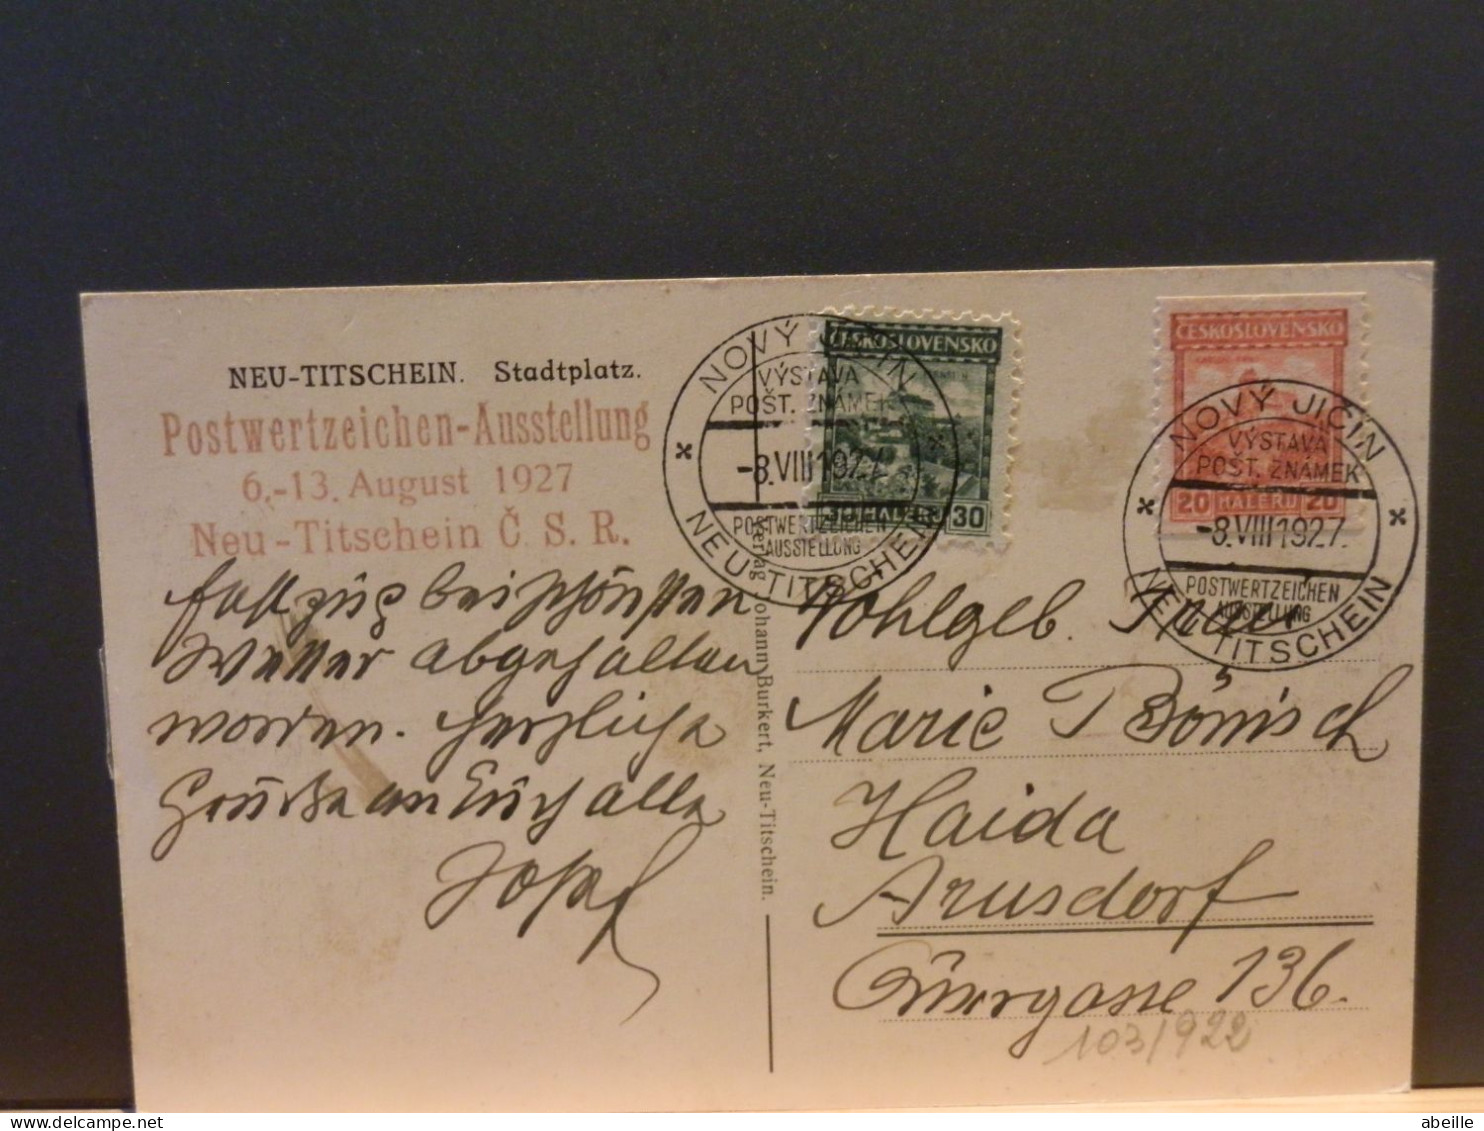 NEU-TITSCHEIN. Stadtplatz.
Postwertzeichen-Ausstellung
6.-13. August 1927
Neu-Titschein Č. S. R.
Festzug bei schönsten
Wetter abgehalten
worden. Herzliche
Grüße an Euch alle
Josef
Verlag Johann Burkert, Neu-Titschein.
NOVÝ JIČÍN
VÝSTAVA
POŠT. ZNÁMEK
-8.VIII 1927.
POSTWERTZEICHEN
AUSSTELLUNG
NEU-TITSCHEIN
ČESKOSLOVENSKO
30 HALÉŘŮ 30
ČESKOSLOVENSKO
20 HALÉŘŮ 20
NOVÝ JIČÍN
VÝSTAVA
POŠT. ZNÁMEK
-8.VIII 1927.
POSTWERTZEICHEN
AUSSTELLUNG
NEU-TITSCHEIN
Wohlgeb. Frau
Marie Bönisch
Haida
Arnsdorf
136.
103/922
abeille